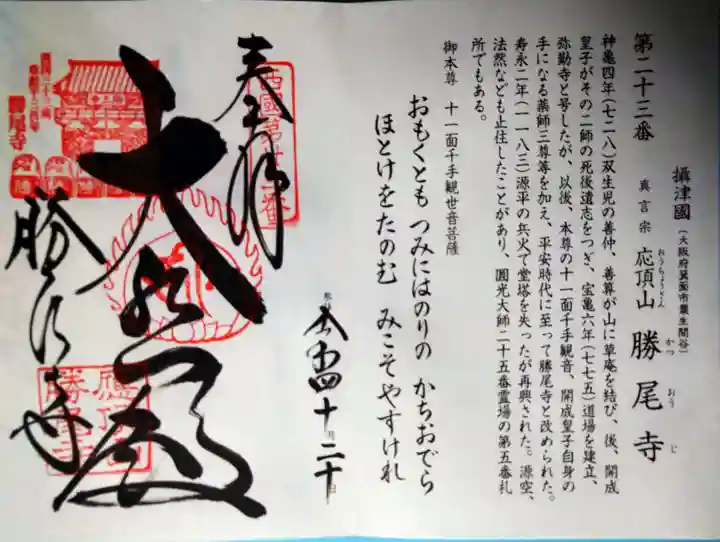 第二十三番
攝津國(大阪府箕面市粟生間谷)
真言宗 応頂山 勝尾寺
おうちょうさん かつおうじ
神亀四年(七二八)双生児の善仲、善算が山に草庵を結び、後、開成
皇子がその二師の死後遺志をつぎ、宝亀六年(七七五)道場を建立、
弥勒寺と号したが、以後、本尊の十一面千手観音、開成皇子自身の
手になる薬師三尊等を加え、平安時代に至って勝尾寺と改められた。
寿永二年(一一八三)源平の兵火で堂塔を失ったが再興された。源空、
法然なども止住したことがあり、圓光大師二十五番霊場の第五番札
所でもある。
御本尊 十一面千手観世音菩薩
おもくとも つみにはのりの かちおでら
ほとけをたのむ みこそやすけれ
奉拝
西國第廿三番
大悲殿
勝尾寺
應頂山
勝尾寺
十月二十